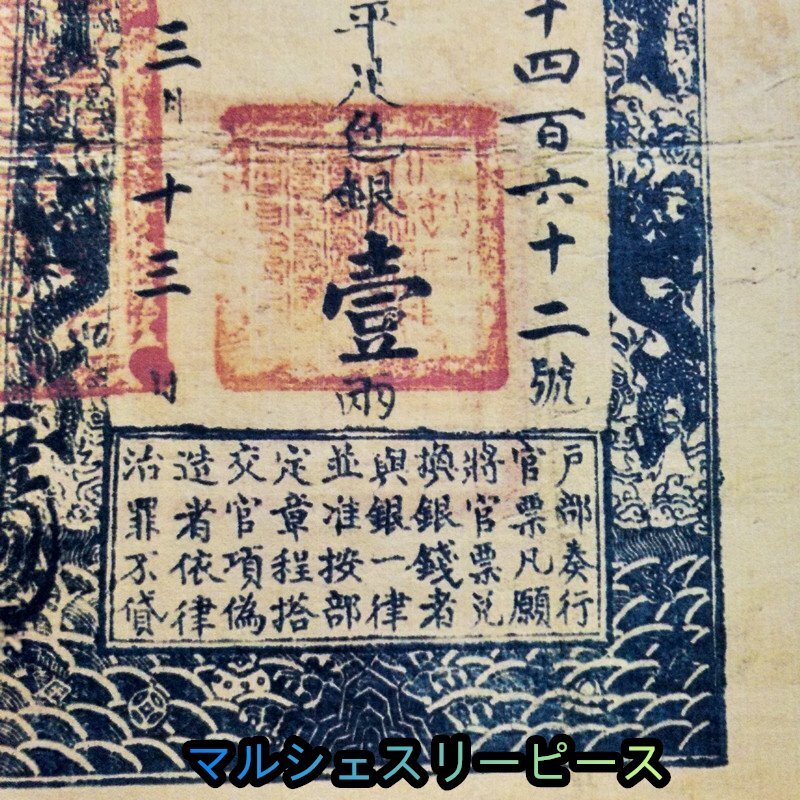 十四百六十二號
平足色銀壹兩
三月十三日
戶部奏行
官票凡願
將官票兌
換銀錢者
與銀一律
並准按部
定章程搭
交官項偽
造者依律
治罪不貸
マルシェスリーピース